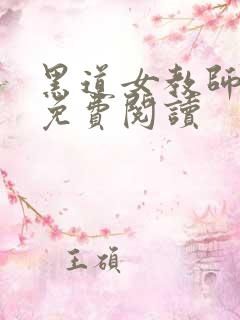 黑道女教師
免費閱讀
王碩